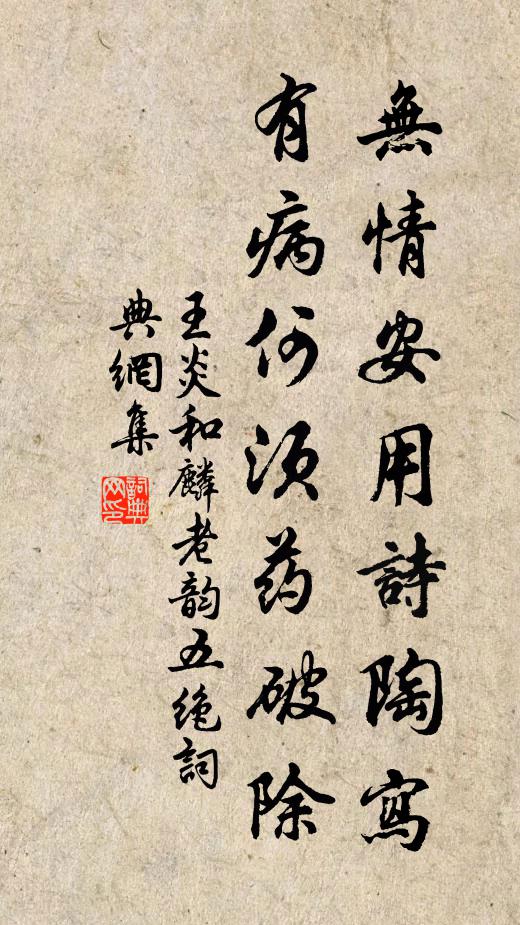 無情安用詩陶寫
有病何須药破除
王炎和麟老韵五绝詞
典網集
詞典
网印